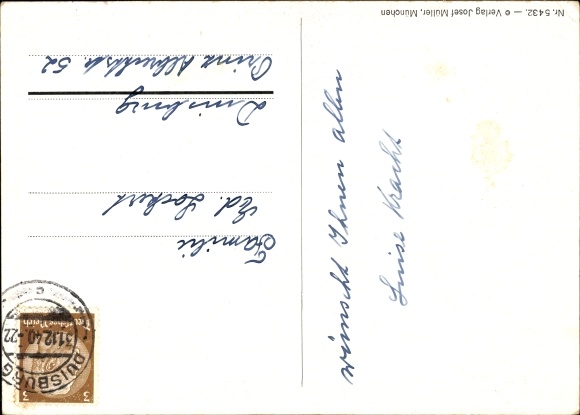 Nr. 5432. — © Verlag Josef Müller, München
wünscht Ihnen allen
Luise Kracht
Familie
Ed. Lockert
Duisburg
Prinz Albrechtstr. 52
Deutsches Reich
3
3
DUISBURG
31.12.40.-22